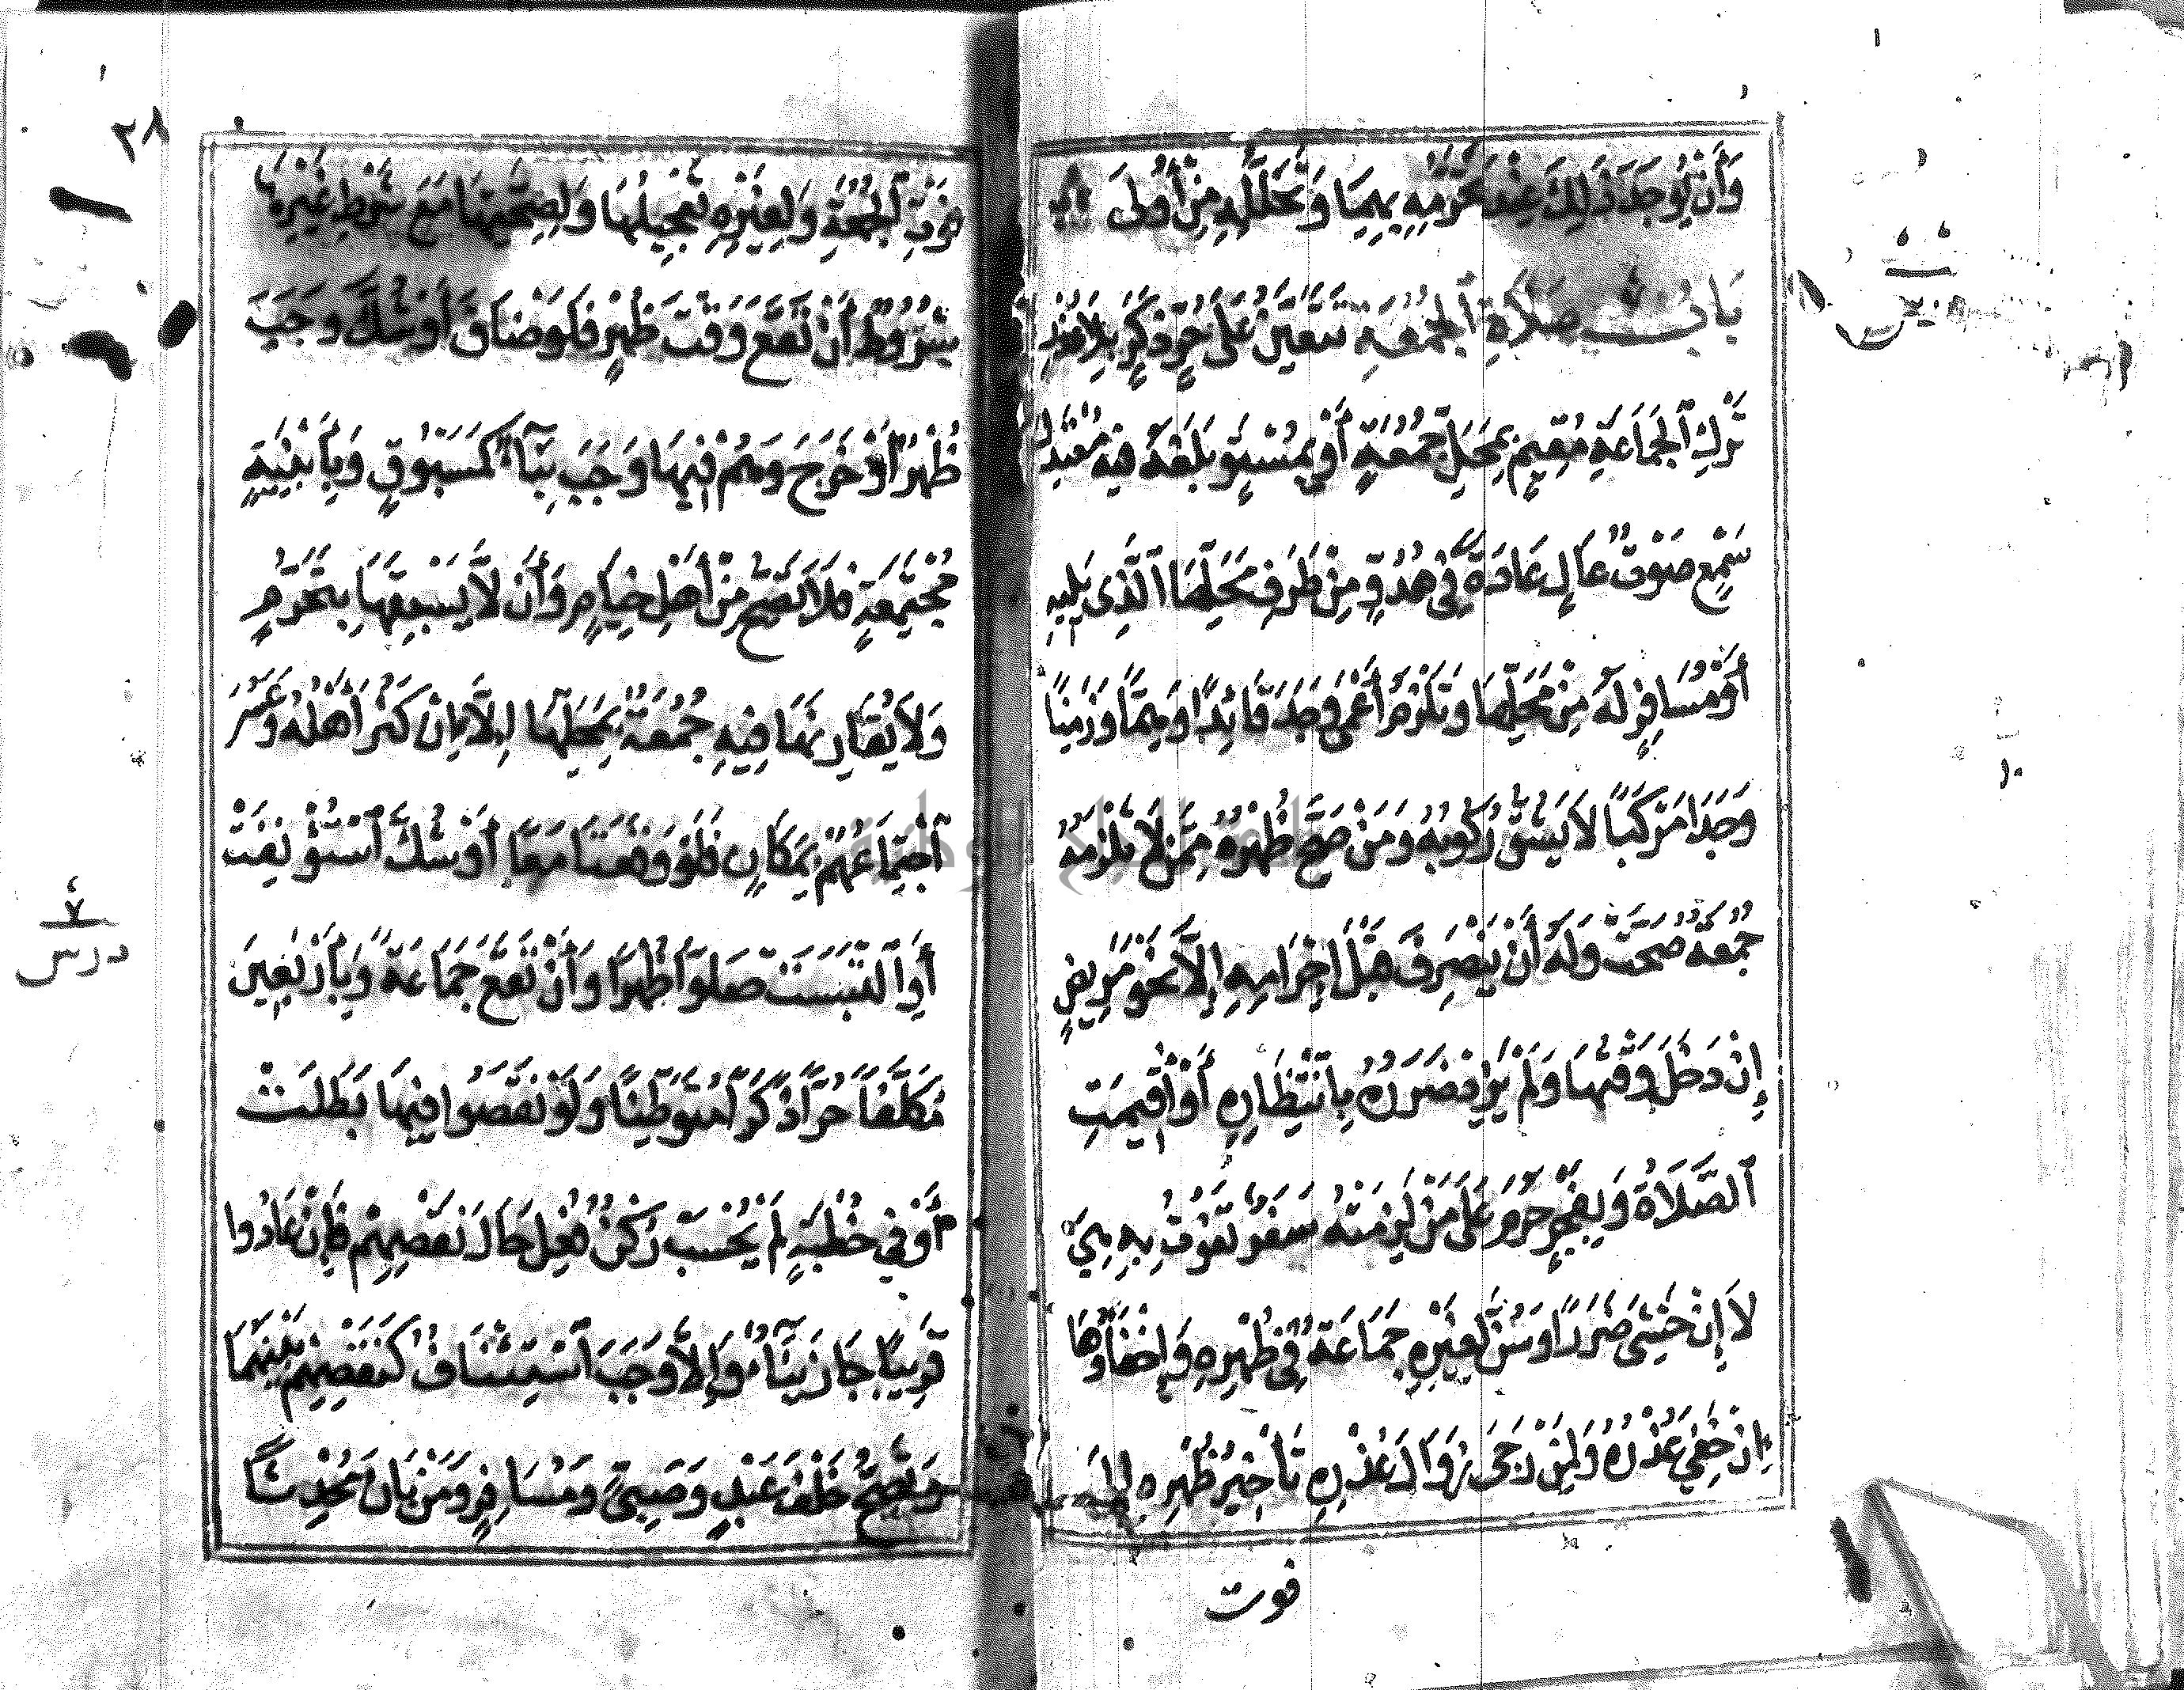 وَأَنْ يُوجَدَ ذَلِكَ عِنْدَ تَحَرُّمِهِ بِهِمَا وَتَحَلُّلِهِ مِنْ أُولَى
بَابُ صَلَاةِ ٱلْجُمُعَةِ تَتَعَيَّنُ عَلَى حُرٍّ ذَكَرٍ بِلَا عُذْرِ
تَرْكِ ٱلْجَمَاعَةِ مُقِيمٍ بِمَحَلِّ جُمُعَةٍ أَوْ بِمُسْتَوٍ بَلَغَهُ فِيهِ مُعْتَدِلَ
سَمْعٍ صَوْتٌ عَالٍ عَادَةً فِي هُدُوٍّ مِنْ طَرَفِ مَحَلِّهَا ٱلَّذِي يَلِيهِ
أَوْ مُسَافِرٍ لَهُ مِنْ مَحَلِّهَا وَتَلْزَمُ أَعْمَى وَجَدَ قَائِدًا وَهِمًّا وَزَمِنًا
وَجَدَا مَرْكَبًا لَا يَشُقُّ رُكُوبُهُ وَمَنْ صَحَّ ظُهْرُهُ مِمَّنْ لَا تَلْزَمُهُ
جُمُعَةٌ صَحَّتْ وَلَهُ أَنْ يَنْصَرِفَ قَبْلَ إِحْرَامِهِ إِلَّا نَحْوَ مَرِيضٍ
إِنْ دَخَلَ وَقْتُهَا وَلَمْ يَزِدْ ضَرَرُهُ بِٱنْتِظَارِهِ أَوْ أُقِيمَتِ
ٱلصَّلَاةُ وَبِفَجْرٍ حَرُمَ عَلَى مَنْ لَزِمَتْهُ سَفَرٌ تَفُوتُ بِهِ
لَا إِنْ خَشِيَ ضَرَرًا وَسُنَّ لِغَيْرِهِ جَمَاعَةٌ فِي ظُهْرِهِ وَإِخْفَاؤُهَا
إِنْ خَفِيَ عُذْرُهُ وَلِمَنْ رَجَى زَوَالَ عُذْرِهِ تَأْخِيرُ ظُهْرِهِ إِلَى
فوت
٢٨
فَوْتِ ٱلْجُمُعَةِ وَلِغَيْرِهِ تَعْجِيلُهَا وَلِصِحَّتِهَا مَعَ شَرْطِ غَيْرِهَا
شُرُوطٌ أَنْ تَقَعَ وَقْتَ ظُهْرٍ فَلَوْ ضَاقَ أَوْ شَكَّ وَجَبَ
ظُهْرٌ أَوْ خَرَجَ وَهُمْ فِيهَا وَجَبَ بِنَاءً كَمَسْبُوقٍ وَبِأَبْنِيَةٍ
مُجْتَمِعَةٍ فَلَا تَصِحُّ مِنْ أَهْلِ خِيَامٍ وَأَنْ لَا يَسْبِقَهَا بِتَحَرُّمٍ
وَلَا يُقَارِنَهَا فِيهِ جُمُعَةٌ بِمَحَلِّهَا إِلَّا إِنْ كَثُرَ أَهْلُهُ وَعَسُرَ
ٱجْتِمَاعُهُمْ بِمَكَانٍ فَلَوْ وَقَعَتَا مَعًا أَوْ شَكَّ ٱسْتُؤْنِفَتْ
أَوِ ٱلْتَبَسَتْ صَلَّوْا ظُهْرًا وَأَنْ تَقَعَ جَمَاعَةً وَبِأَرْبَعِينَ
مُكَلَّفًا حُرًّا ذَكَرًا مُتَوَطِّنًا وَلَوْ نَقَصُوا فِيهَا بَطَلَتْ
أَوْ فِي خُطْبَةٍ لَمْ يُحْسَبْ رُكْنٌ فُعِلَ حَالَ نَقْصِهِمْ فَإِنْ عَادُوا
قَرِيبًا جَازَ بِنَاءٌ وَإِلَّا وَجَبَ ٱسْتِئْنَافٌ كَنَقْصِهِمْ بَيْنَهُمَا
وَتَصِحُّ خَلْفَ عَبْدٍ وَصَبِيٍّ وَمُسَافِرٍ وَمَنْ بَانَ مُحْدِثًا
٧
درس